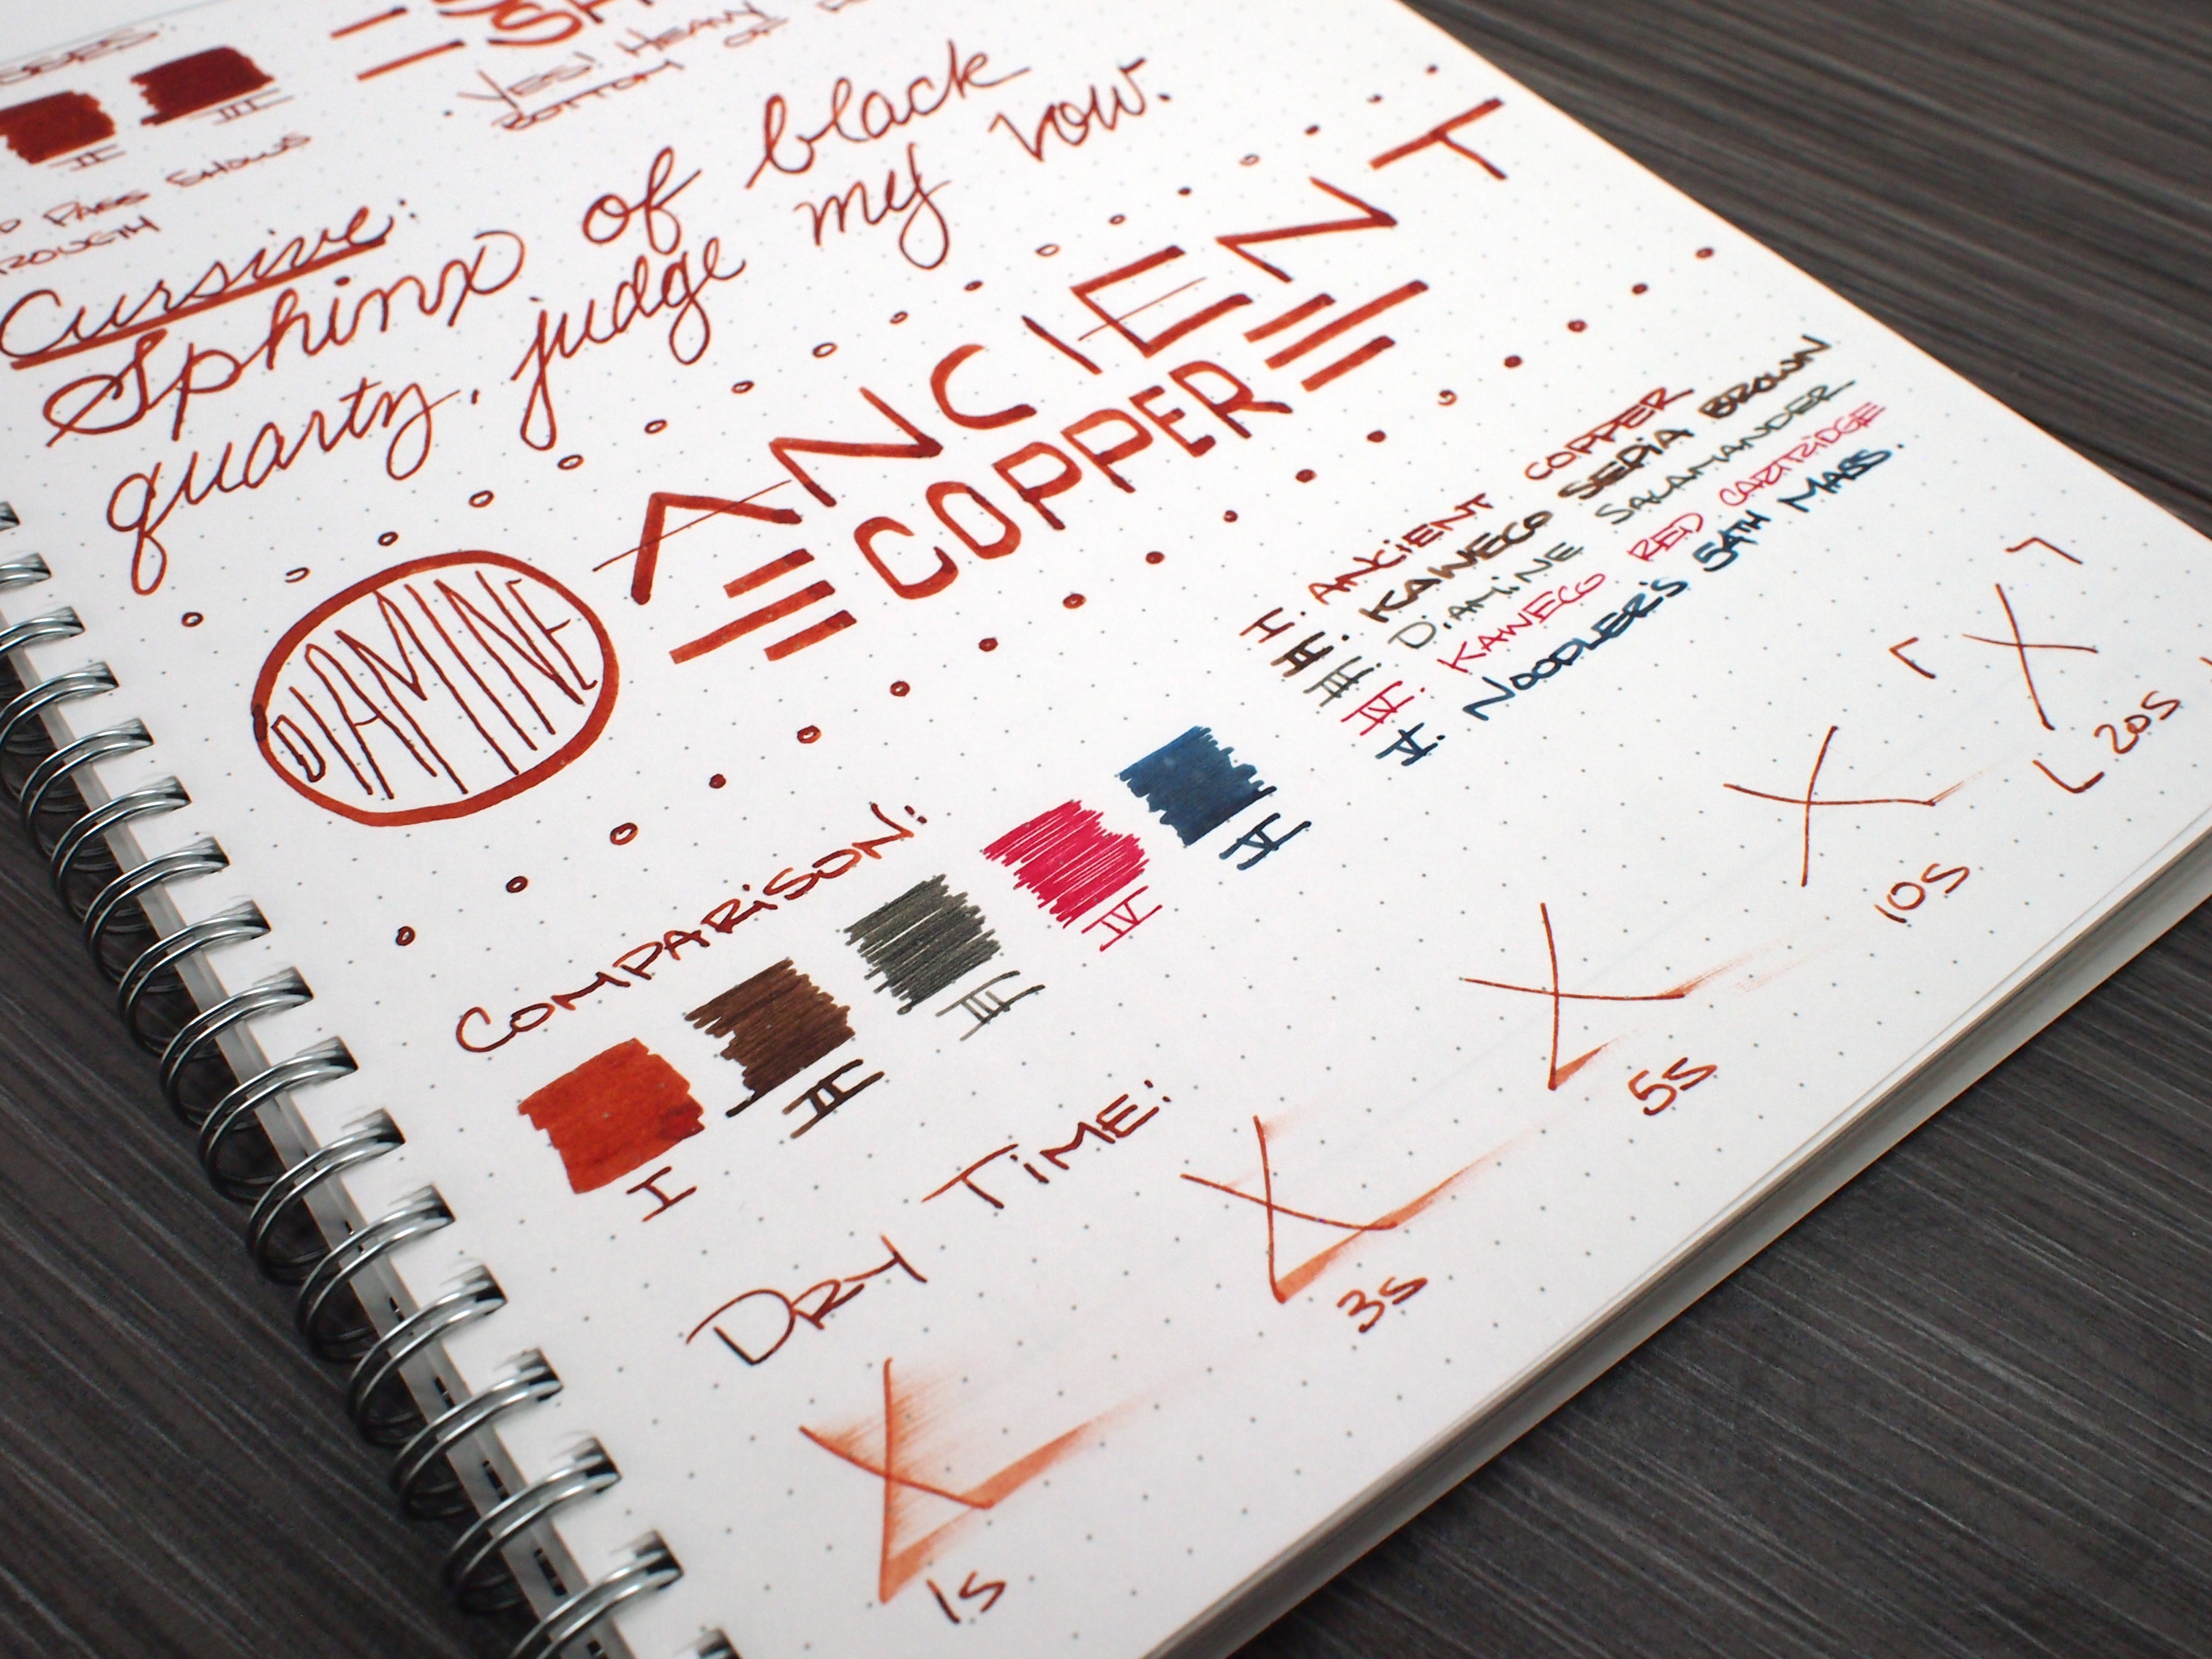 II
III
PASS SHOWS
YES! HEAVY
BOTTOM OF
Cursive:
Sphinx of black
quartz, judge my vow.
DIAMINE
ANCIENT
COPPER
I. ANCIENT COPPER
II. KAWECO SEPIA BROWN
III. DIAMINE SALAMANDER
IV. KAWECO RED CARTRIDGE
V. NOODLER'S 54TH MASS.
COMPARISON:
I
II
III
IV
V
DRY TIME:
1s
3s
5s
10s
20s